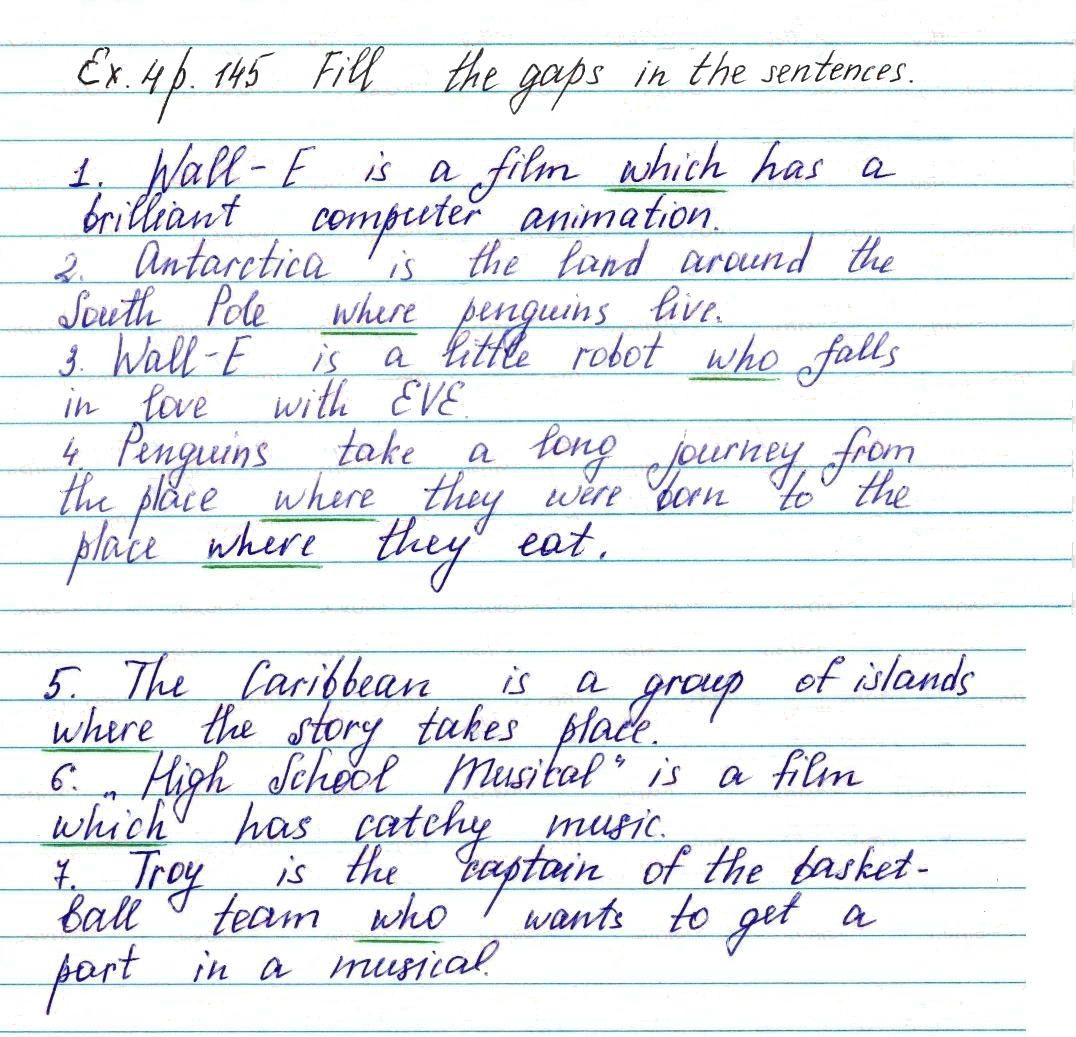 Ex. 4 p. 145 Fill the gaps in the sentences.
1. Wall-E is a film which has a
brilliant computer animation.
2. Antarctica is the land around the
South Pole where penguins live.
3. Wall-E is a little robot who falls
in love with EVE.
4. Penguins take a long journey from
the place where they were born to the
place where they eat.
5. The Caribbean is a group of islands
where the story takes place.
6. „High School Musical“ is a film
which has catchy music.
7. Troy is the captain of the basket-
ball team who wants to get a
part in a musical.